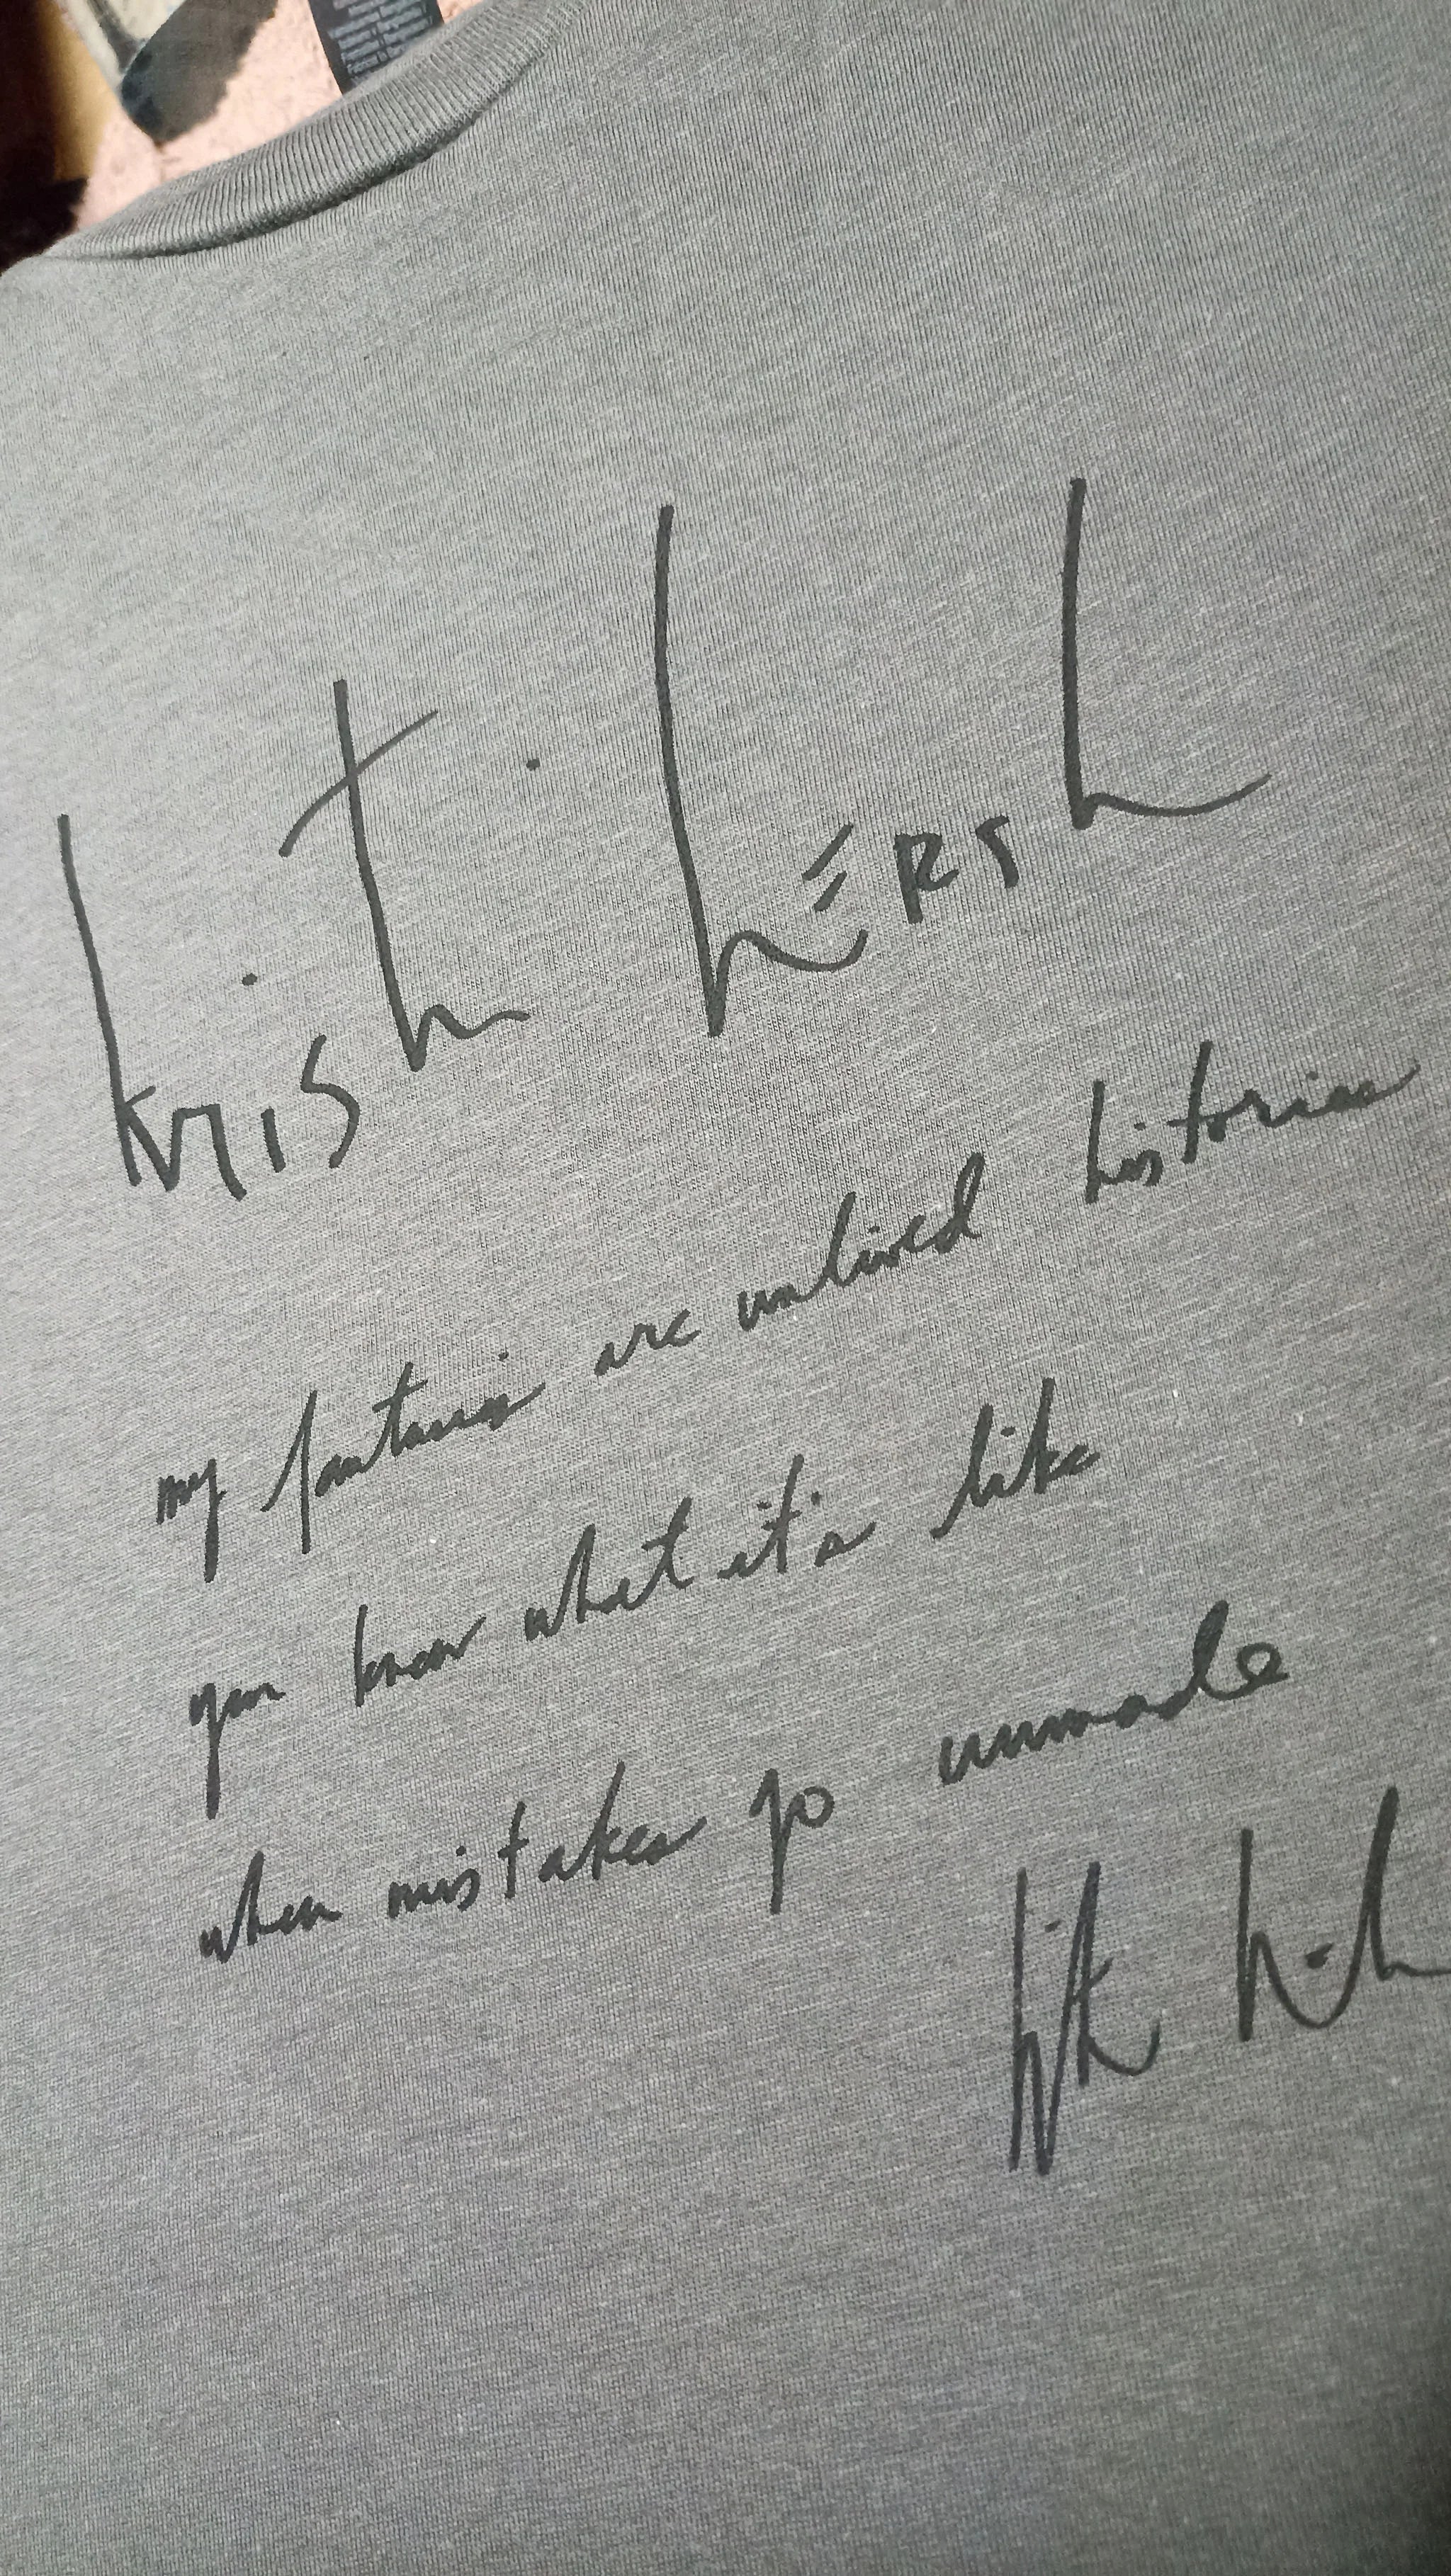 kristin hERSh
my fantasies are unlived histories
you know what it's like
when mistakes go unmade